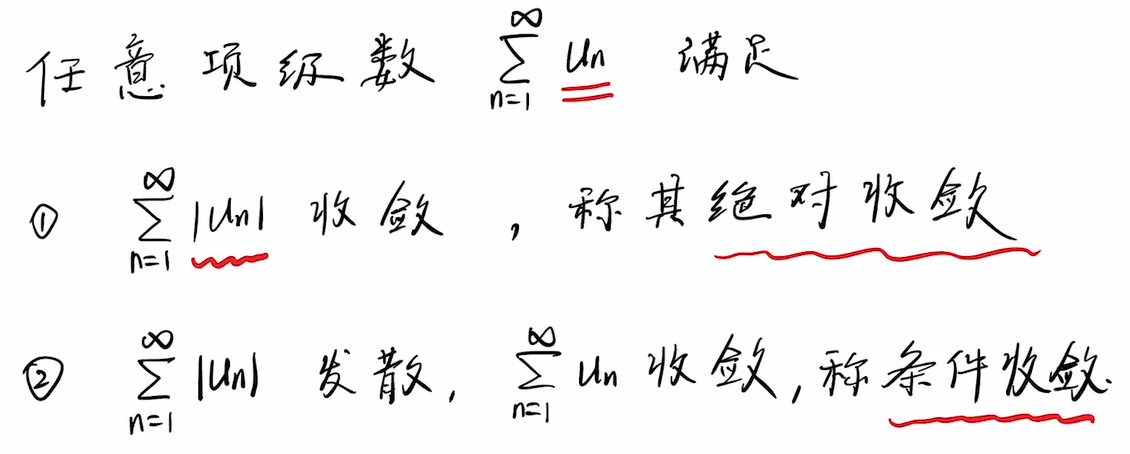 任意项级数 $\sum_{n=1}^{\infty} u_n$ 满足
① $\sum_{n=1}^{\infty} |u_n|$ 收敛，称其绝对收敛
② $\sum_{n=1}^{\infty} |u_n|$ 发散，$\sum_{n=1}^{\infty} u_n$ 收敛，称条件收敛.